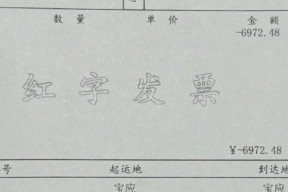 数量 单价 金额
-6972.48
红字发票
¥-6972.48
号 起达地 到达地
宝应 宝应